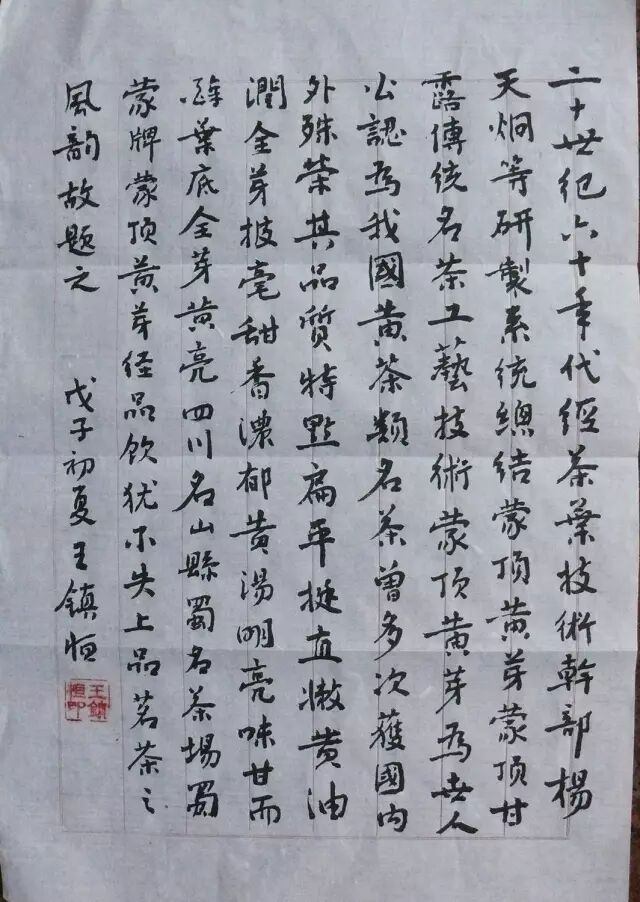 二十世纪六十年代經茶葉技術幹部楊
天炯等研製系统總结蒙顶黄芽蒙顶甘
露傳统名茶工藝技術蒙顶黄芽為世人
公認為我國黄茶類名茶曾多次獲國内
外殊荣其品質特點扁平挺直嫩黄油
潤全芽披毫甜香濃郁黄湯明亮味甘而
醇葉底全芽黄亮四川名山縣蜀名茶場蜀
蒙牌蒙顶黄芽径品饮犹不失上品茗茶之
風韵故題之 戊子初夏王鎮恒
王鎮恒印